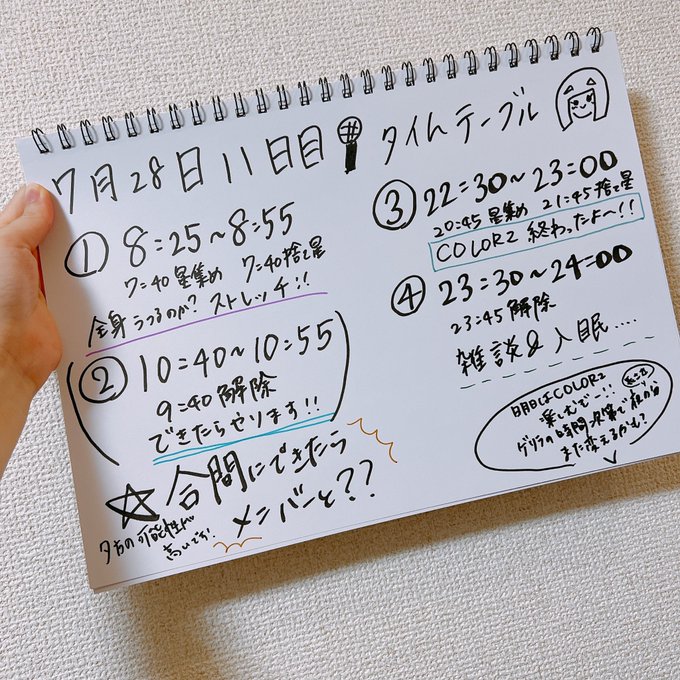 7月28日11日目
タイムテーブル
① 8:25~8:55
7:40 星集め 7:40 捨て星
全身うつるのか？ストレッチ!!
② 10:40~10:55
9:40 解除
できたらやります!!
☆合間にできたら
メンバーと??
夕方の可能性が
高いです!
③ 22:30~23:00
20:45 星集め 21:45 捨て星
COLOR2 終わったよ〜!!
④ 23:30~24:00
23:45 解除
雑談&入眠....
明日はCOLOR2
楽しむぞー!!
ゲリラの時間次第で枠が
また変えるかも?